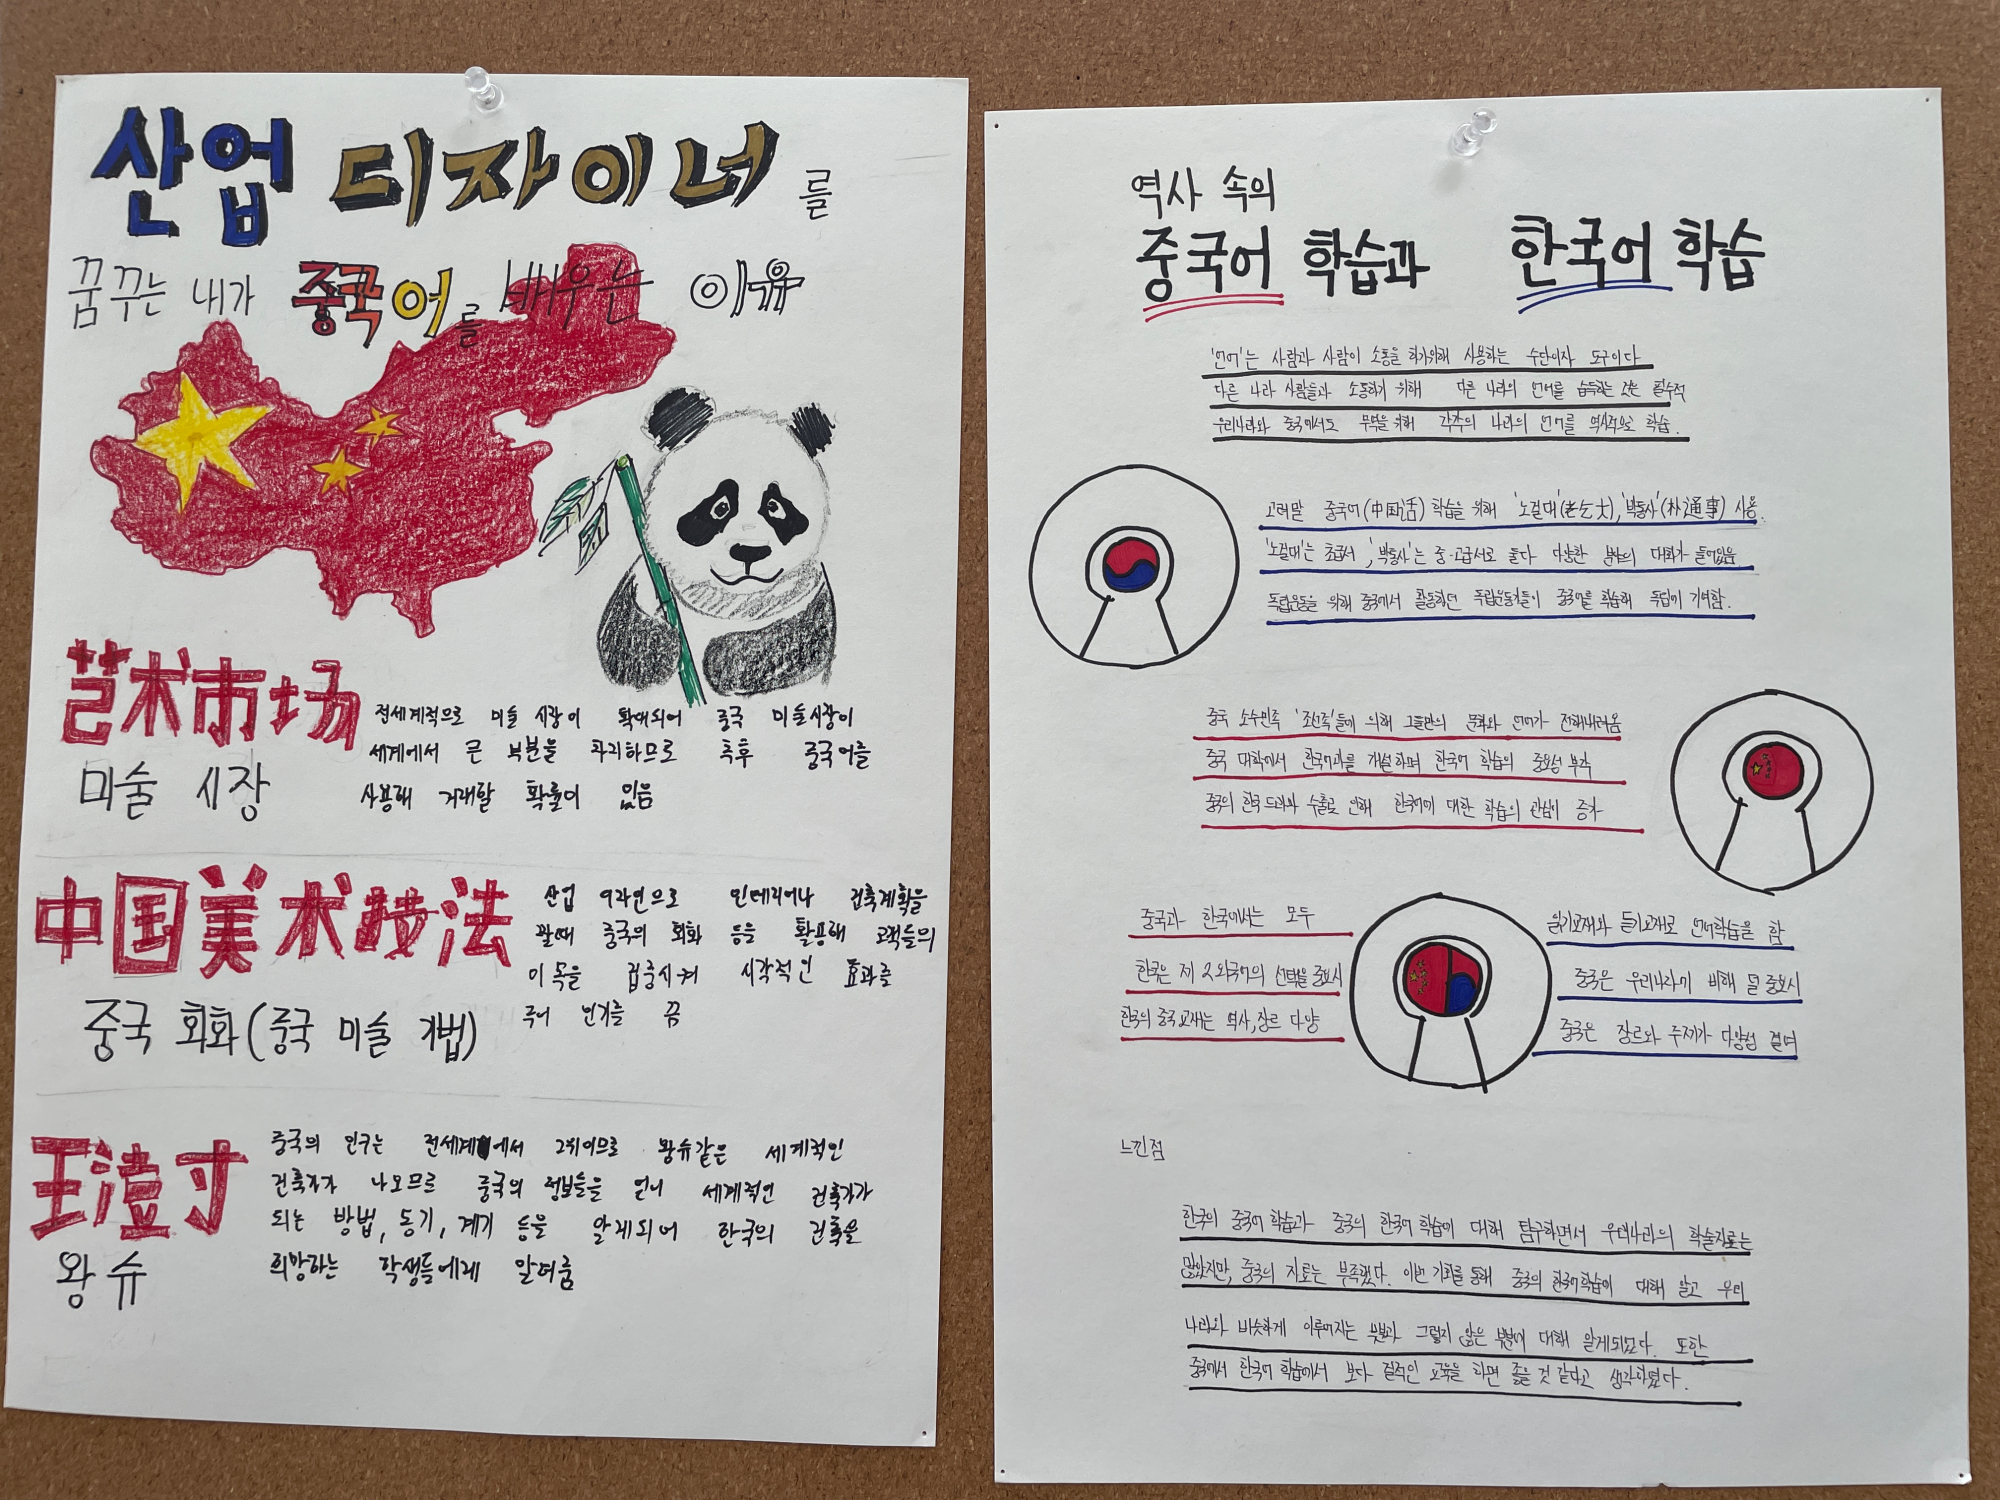 산업 디자이너를
꿈꾸는 내가 중국어를 배우는 이유
艺术市场
미술 시장
전세계적으로 미술 시장이 확대되어 중국 미술시장이
세계에서 큰 부분을 차지하므로 추후 중국어를
사용해 거래할 확률이 있음
中国美术技法
중국 회화(중국 미술 기법)
산업 디자인으로 인테리어나 건축계획을
짤때 중국의 회화 등을 활용해 고객들의
이목을 집중시켜 시각적인 효과를
주어 인기를 끔
王澍
왕슈
중국의 인구는 전세계에서 2위이므로 왕슈같은 세계적인
건축가가 나오므로 중국의 정보들을 얻어 세계적인 건축가가
되는 방법, 동기, 계기 등을 알게되어 한국의 건축을
희망하는 학생들에게 알려줌
역사 속의
중국어 학습과 한국어 학습
'언어'는 사람과 사람이 소통을 하기위해 사용하는 수단이자 도구이다
다른 나라 사람들과 소통하기 위해 다른 나라의 언어를 습득하는 것은 필수적
우리나라와 중국에서도 무역을 위해 각각의 나라의 언어를 역사적으로 학습.
고려말 중국어(中国话) 학습을 위해 '노걸대'(老乞大), '박통사'(朴通事) 사용.
'노걸대'는 초급서, '박통사'는 중·고급서로 둘다 다양한 분야의 대화가 들어있음
독립운동을 위해 중국에서 활동하던 독립운동가들이 중국어를 학습해 독립에 기여함.
중국 소수민족 '조선족'들에 의해 그들만의 문화와 언어가 전해내려옴
중국 대학에서 한국어과를 개설하며 한국어 학습의 중요성 부각
중국의 한국 드라마 수출로 인해 한국어에 대한 학습의 관심이 증가
중국과 한국에서는 모두
읽기교재와 듣기교재로 언어학습을 함
한국은 제 2외국어의 선택을 중요시
중국은 우리나라에 비해 덜 중요시
한국의 중국교재는 역사, 장르 다양
중국은 장르와 주제가 다양성 결여
느낀점
한국의 중국어 학습과 중국의 한국어 학습에 대해 탐구하면서 우리나라의 학술자료는
많았지만, 중국의 자료는 부족했다. 이번 기회를 통해 중국의 한국어학습에 대해 알고 우리
나라와 비슷하게 이루어지는 부분과 그렇지 않은 부분에 대해 알게되었다. 또한
중국에서 한국어 학습에서 보다 질적인 교육을 하면 좋을 것 같다고 생각하였다.